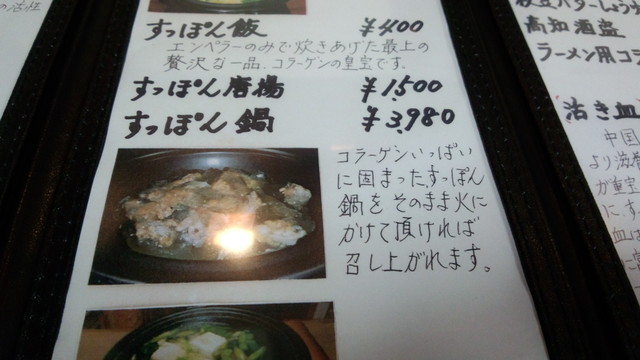 の活性
すっぽん飯 ¥400
エンペラーのみで炊きあげた最上の
贅沢な一品、コラーゲンの皇宝です。
すっぽん唐揚 ¥1,500
すっぽん鍋 ¥3,980
コラーゲンいっぱい
に固まったすっぽん
鍋をそのまま火に
かけて頂ければ
召し上がれます。
枝豆バターしょうゆ
高知酒盗
ラーメン用コラ
活き血
中国
より滋
が重宝
に、す
血は